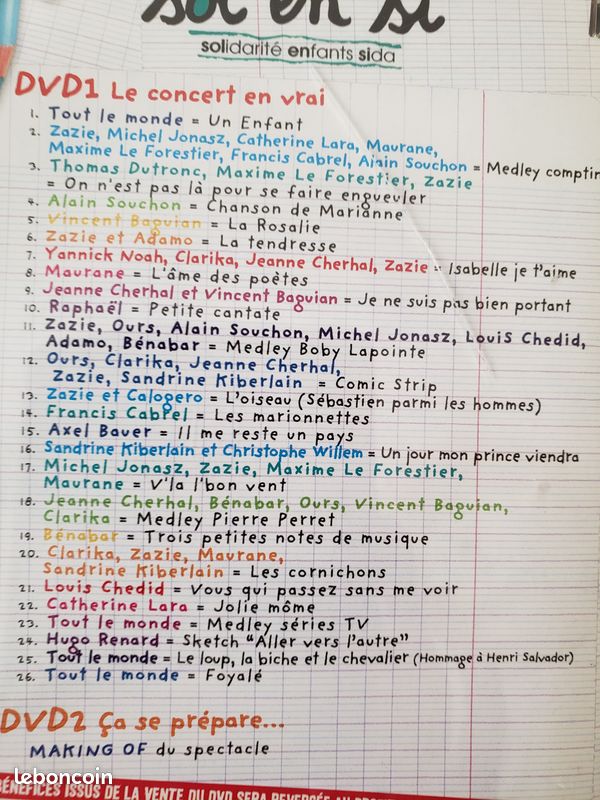 sol en si
solidarité enfants sida
DVD1 Le concert en vrai
1. Tout le monde = Un Enfant
2. Zazie, Michel Jonasz, Catherine Lara, Maurane,
Maxime Le Forestier, Francis Cabrel, Alain Souchon = Medley comptin
3. Thomas Dutronc, Maxime Le Forestier, Zazie
= On n'est pas là pour se faire engueuler
4. Alain Souchon = Chanson de Marianne
5. Vincent Baguian = La Rosalie
6. Zazie et Adamo = La tendresse
7. Yannick Noah, Clarika, Jeanne Cherhal, Zazie = Isabelle je t'aime
8. Maurane = L'âme des poètes
9. Jeanne Cherhal et Vincent Baguian = Je ne suis pas bien portant
10. Raphaël = Petite cantate
11. Zazie, Ours, Alain Souchon, Michel Jonasz, Louis Chedid,
Adamo, Bénabar = Medley Boby Lapointe
12. Ours, Clarika, Jeanne Cherhal,
Zazie, Sandrine Kiberlain = Comic Strip
13. Zazie et Calogero = L'oiseau (Sébastien parmi les hommes)
14. Francis Cabrel = Les marionnettes
15. Axel Bauer = Il me reste un pays
16. Sandrine Kiberlain et Christophe Willem = Un jour mon prince viendra
17. Michel Jonasz, Zazie, Maxime Le Forestier,
Maurane = V'la l'bon vent
18. Jeanne Cherhal, Bénabar, Ours, Vincent Baguian,
Clarika = Medley Pierre Perret
19. Bénabar = Trois petites notes de musique
20. Clarika, Zazie, Maurane,
Sandrine Kiberlain = Les cornichons
21. Louis Chedid = Vous qui passez sans me voir
22. Catherine Lara = Jolie môme
23. Tout le monde = Medley séries TV
24. Hugo Renard = Sketch "Aller vers l'autre"
25. Tout le monde = Le loup, la biche et le chevalier (Hommage à Henri Salvador)
26. Tout le monde = Foyalé
DVD2 Ça se prépare...
MAKING OF du spectacle
leboncoin
BÉNÉFICES ISSUS DE LA VENTE DU DVD SERA